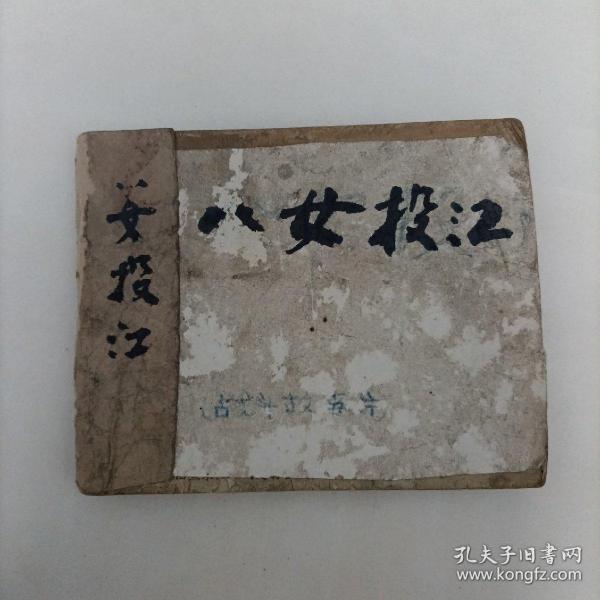 八女投江
八女投江
孔夫子旧書网
www.kongfz.com